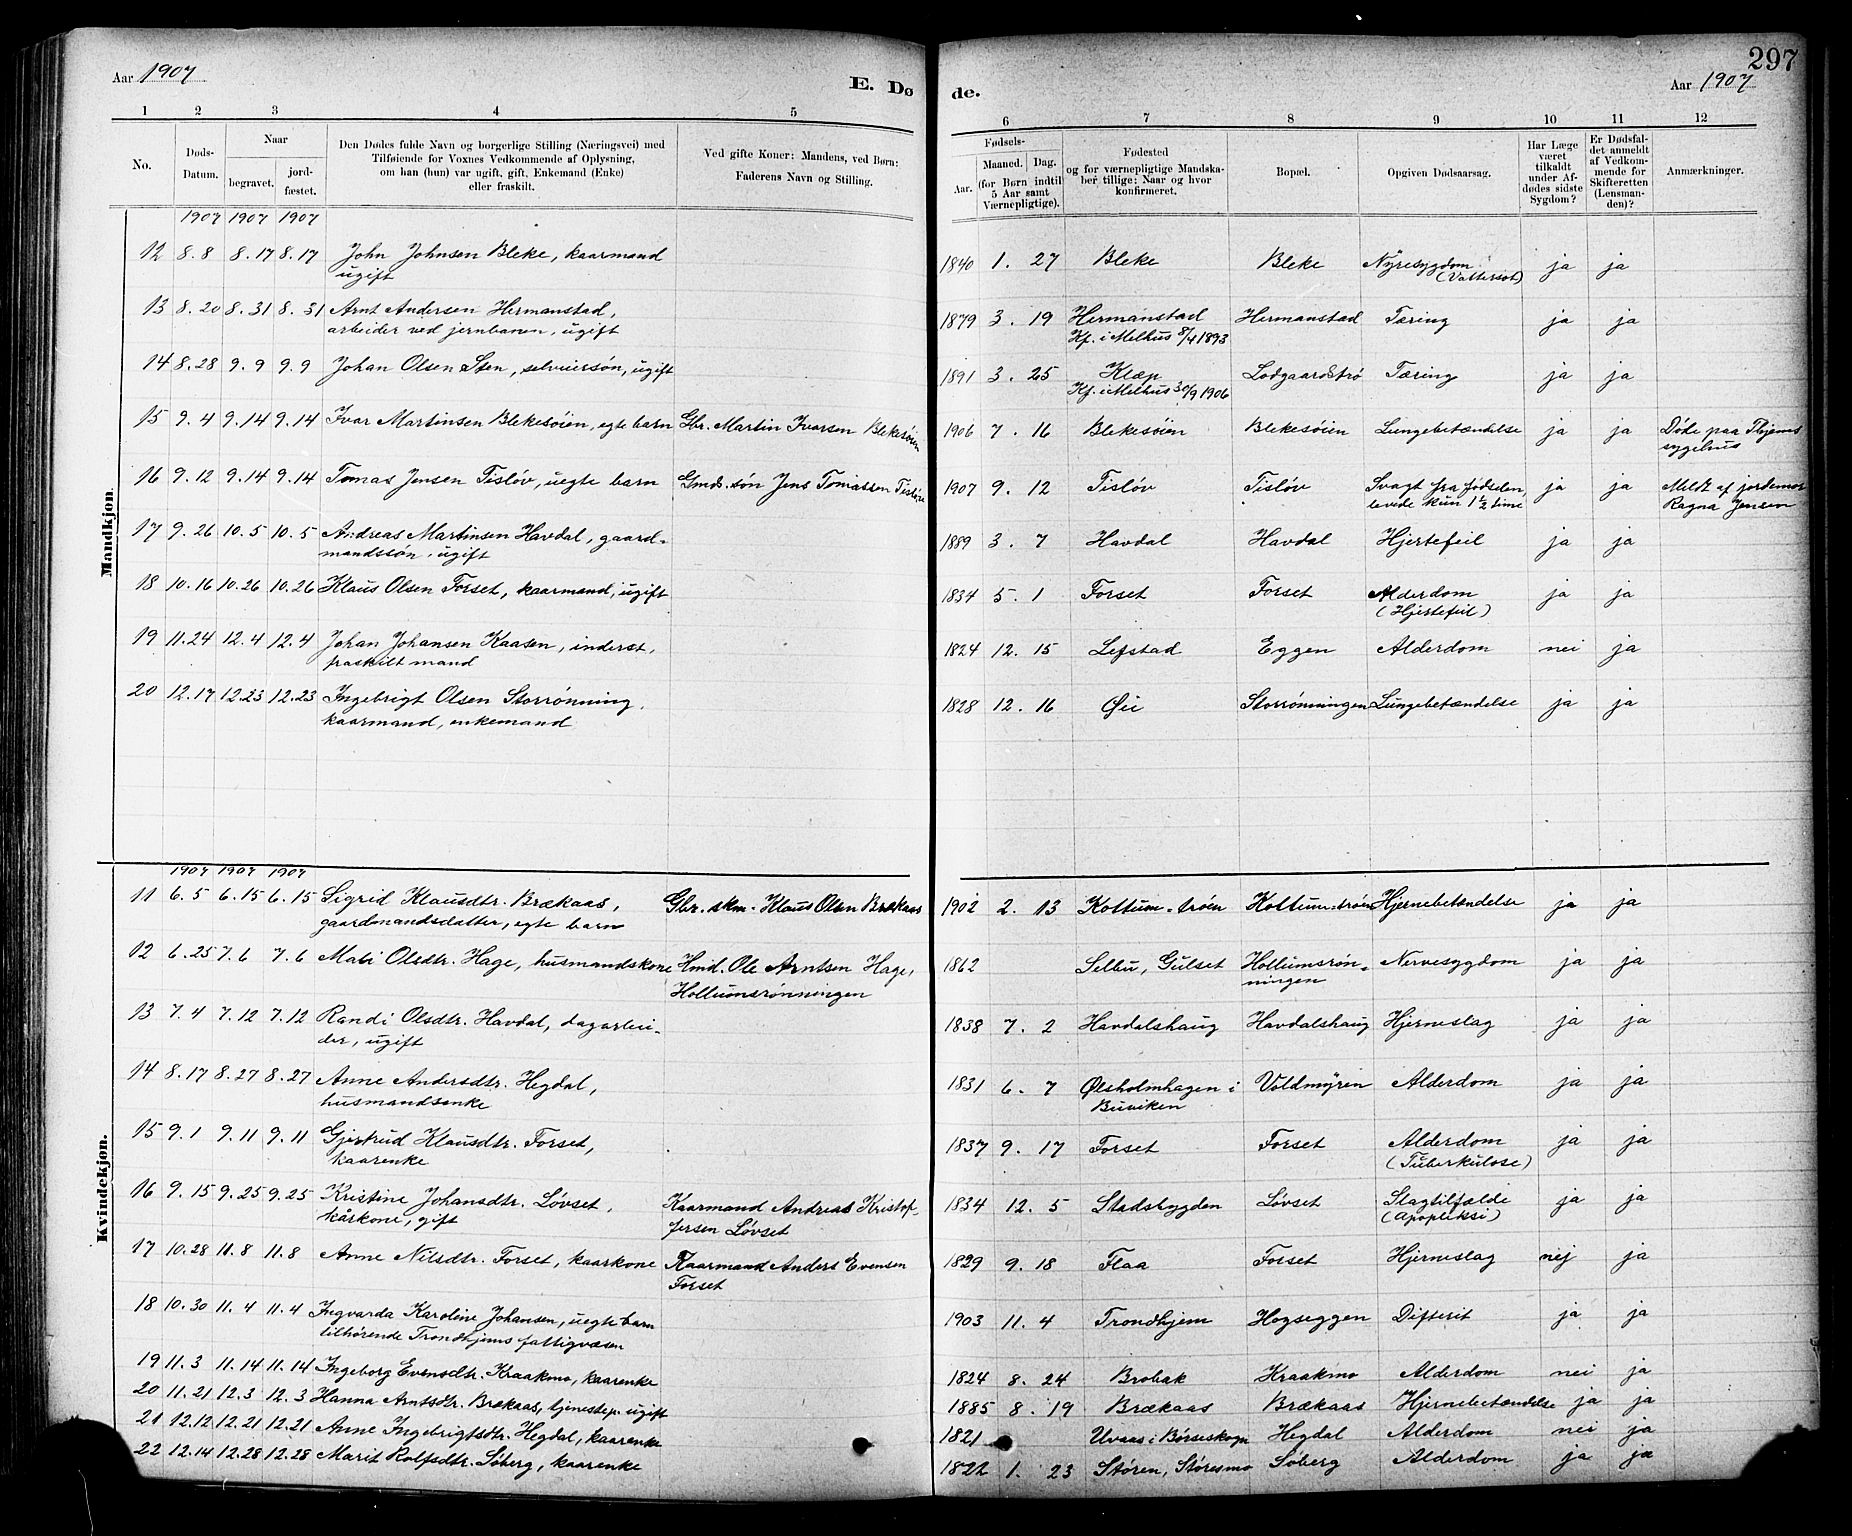 297
Aar 1907
E. Dø
de.
Aar 1907
1 2 3 4 5 6 7 8 9 10 11 12
No.
Døds-Datum.
Naar
begravet.
jord-fæstet.
Den Dødes fulde Navn og borgerlige Stilling (Næringsvei) med
Tilføiende for Voxnes Vedkommende af Oplysning,
om han (hun) var ugift, gift, Enkemand (Enke)
eller fraskilt.
Ved gifte Koner: Mandens, ved Børn:
Faderens Navn og Stilling.
Fødsels-
Aar.
Maaned. Dag.
(for Børn indtil
5 Aar samt
Værnepligtige).
Fødested
og for værnepligtige Mandska-
ber tillige: Naar og hvor
konfirmeret.
Bopæl.
Opgiven Dødsaarsag.
Har Læge
været
tilkaldt
under Af-
dødes sidste
Sygdom?
Er Dødsfal-
det anmeldt
af Vedkom-
mende for
Skifteretten
(Lensman-
den)?
Anmærkninger.
Mandkjøn.
1907 1907 1907
12 8.8 8.17 8.17 John Johnsen Bleke, kaarmand 1840 1. 27 Bleke Bleke Nyresygdom ja ja
ugift (Vattersot)
13 8.20 8.31 8.31 Arnt Andersen Hermanstad, 1879 3. 19 Hermanstad Hermanstad Tæring ja ja
arbeider ved jernbanen, ugift Kf. i Melhus 8/4 1893
14 8.28 9.9 9.9 Johan Olsen Sten, selveiersøn, ugift 1891 3. 25 Klæp Lodgaardstrø Tæring ja ja
Kf. i Melhus 30/9 1906
15 9.4 9.14 9.14 Ivar Martinsen Blekesøien, egte barn Gbr. Martin Ivarsen Blekesøien 1906 7. 16 Blekesøien Blekesøien Lungebetændelse ja ja Døde paa Thjems
sygehus
16 9.12 9.14 9.14 Tomas Jensen Tisløv, uegte barn Gmds.søn Jens Tomassen Tisløv 1907 9. 12 Tisløv Tisløv Svagt fra fødselen, ja ja Meldt af jordemor
levede kun 1 1/2 time Ragna Jensen
17 9.26 10.5 10.5 Andreas Martinsen Havdal, gaard- 1889 3. 7 Havdal Havdal Hjertefeil ja ja
mandssøn, ugift
18 10.16 10.26 10.26 Klaus Olsen Forset, kaarmand, ugift 1834 5. 1 Forset Forset Alderdom ja ja
(Hjertefeil)
19 11.24 12.4 12.4 Johan Johansen Kaasen, inderst, 1824 12. 15 Lefstad Eggen Alderdom nei ja
fraskilt mand
20 12.17 12.23 12.23 Ingebrigt Olsen Storrønning, 1828 12. 16 Øie Storrønningen Lungebetændelse ja ja
kaarmand, enkemand
Kvindekjøn.
1907 1907 1907
11 6.5 6.15 6.15 Sigrid Klausdtr. Brækaas, Gbr. skm. Klaus Olsen Brækaas 1902 2. 13 Kottum-trøen Kottum-trøen Hjernebetændelse ja ja
gaardmandsdatter, egte barn
12 6.25 7.6 7.6 Mali Olsdtr. Hage, husmandskone Hmd. Ole Arntsen Hage, 1862 Selbu, Gulset Hollumsrøn- Nervesygdom ja ja
Hollumsrønningen ningen
13 7.4 7.12 7.12 Randi Olsdtr. Havdal, dagarbei- 1838 7. 2 Havdalshaug Havdalshaug Hjerneslag ja ja
der, ugift
14 8.17 8.27 8.27 Anne Andersdtr. Hegdal, 1831 6. 7 Ølsholmhagen i Voldmyren Alderdom ja ja
husmandsenke Buviken
15 9.1 9.11 9.11 Gjertrud Klausdtr. Forset, 1837 9. 17 Forset Forset Alderdom ja ja
kaarenke (Tuberkulose)
16 9.15 9.25 9.25 Kristine Johansdtr. Løvset, Kaarmand Andreas Kristof- 1834 12. 5 Stadsbygden Løvset Slagtilfælde ja ja
kårkone, gift fersen Løvset (Apopleksi)
17 10.28 11.8 11.8 Anne Nilsdtr. Forset, kaarkone Kaarmand Anders Evensen 1829 9. 18 Flaa Forset Hjerneslag nej ja
Forset
18 10.30 11.4 11.4 Ingvarda Karoline Johansen, uegte barn 1903 11. 4 Trondhjem Hogseggen Difterit ja ja
tilhørende Trondhjems fattigvæsen
19 11.3 11.14 11.14 Ingeborg Evensdtr. Kraakmo, kaarenke 1824 8. 24 Brobak Kraakmo Alderdom nei ja
20 11.21 12.3 12.3 Hanna Arntsdtr. Brækaas, tjenestep. ugift 1885 8. 19 Brækaas Brækaas Hjernebetændelse ja ja
21 12.12 12.21 12.21 Anne Ingebrigtsdtr. Hegdal, kaarenke 1821 Uvaas i Børseskogn Hegdal Alderdom nei ja
22 12.14 12.28 12.28 Marit Rolfsdtr. Søberg, kaarenke 1822 1. 23 Støren, Støresmo Søberg Alderdom ja ja